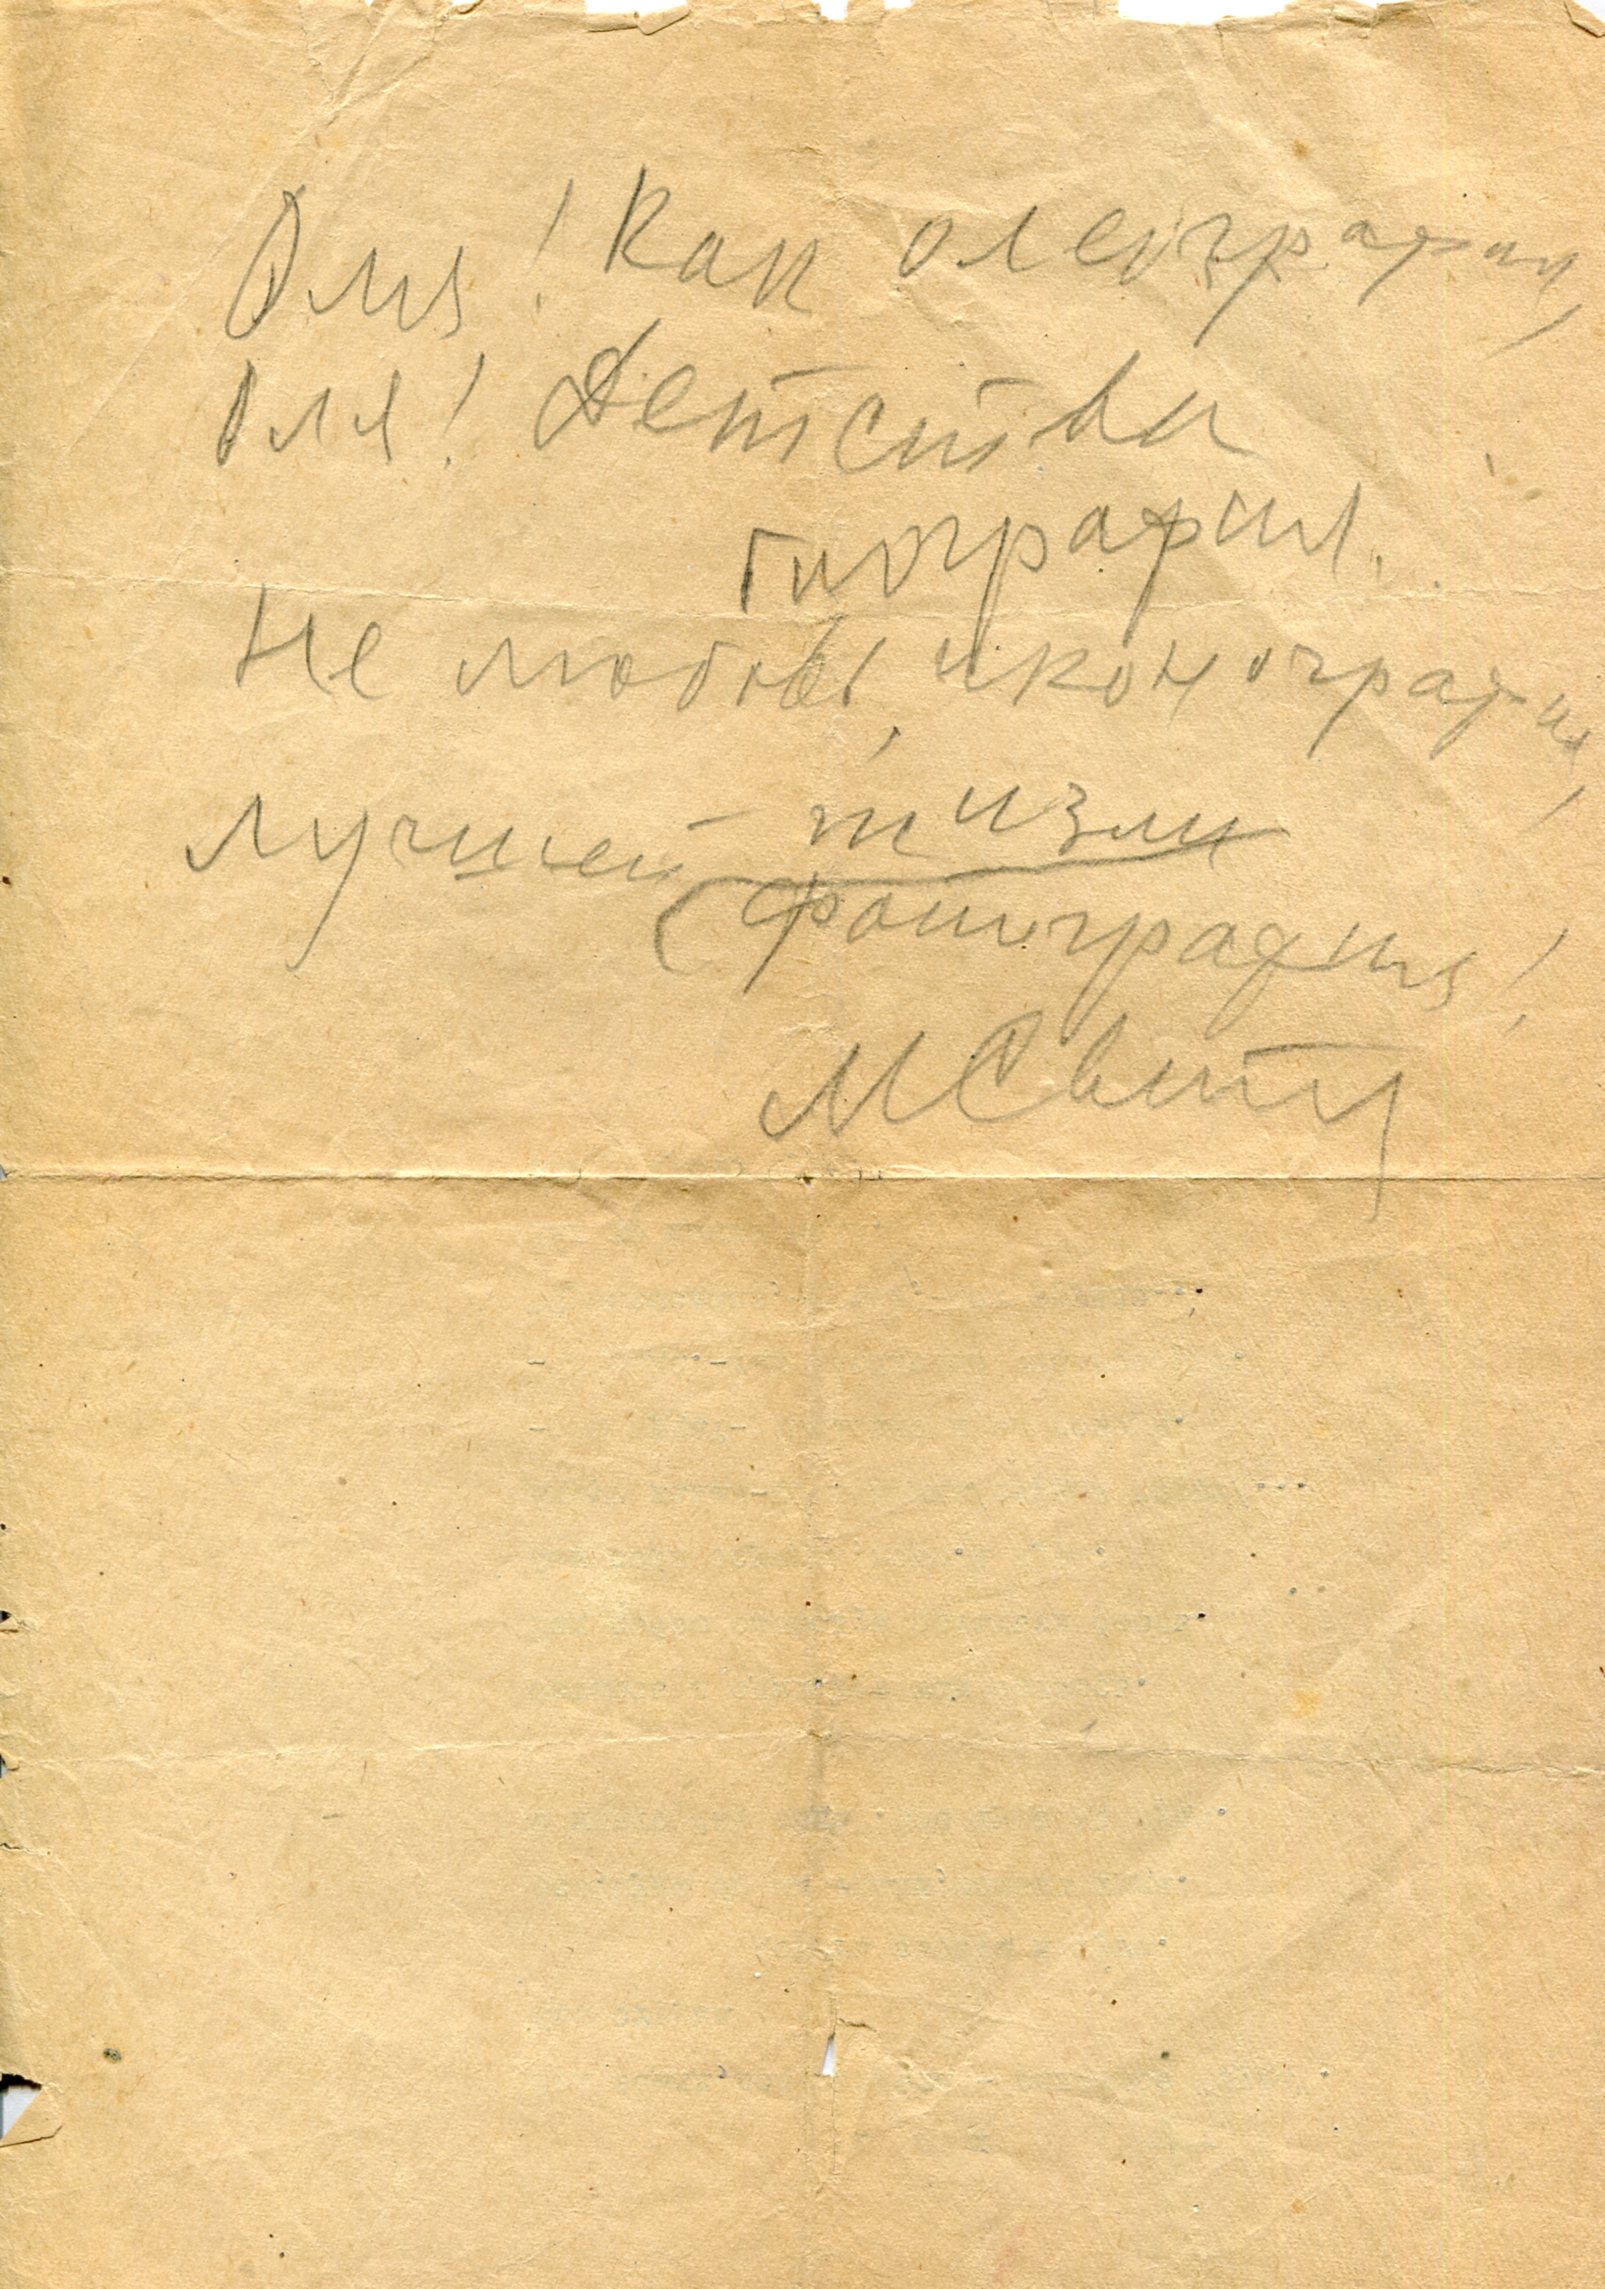 Оля! Как олеография,
Оля! Детства
география.
Не любовь, иконография,
лучшей жизни
фотография!
МСвет